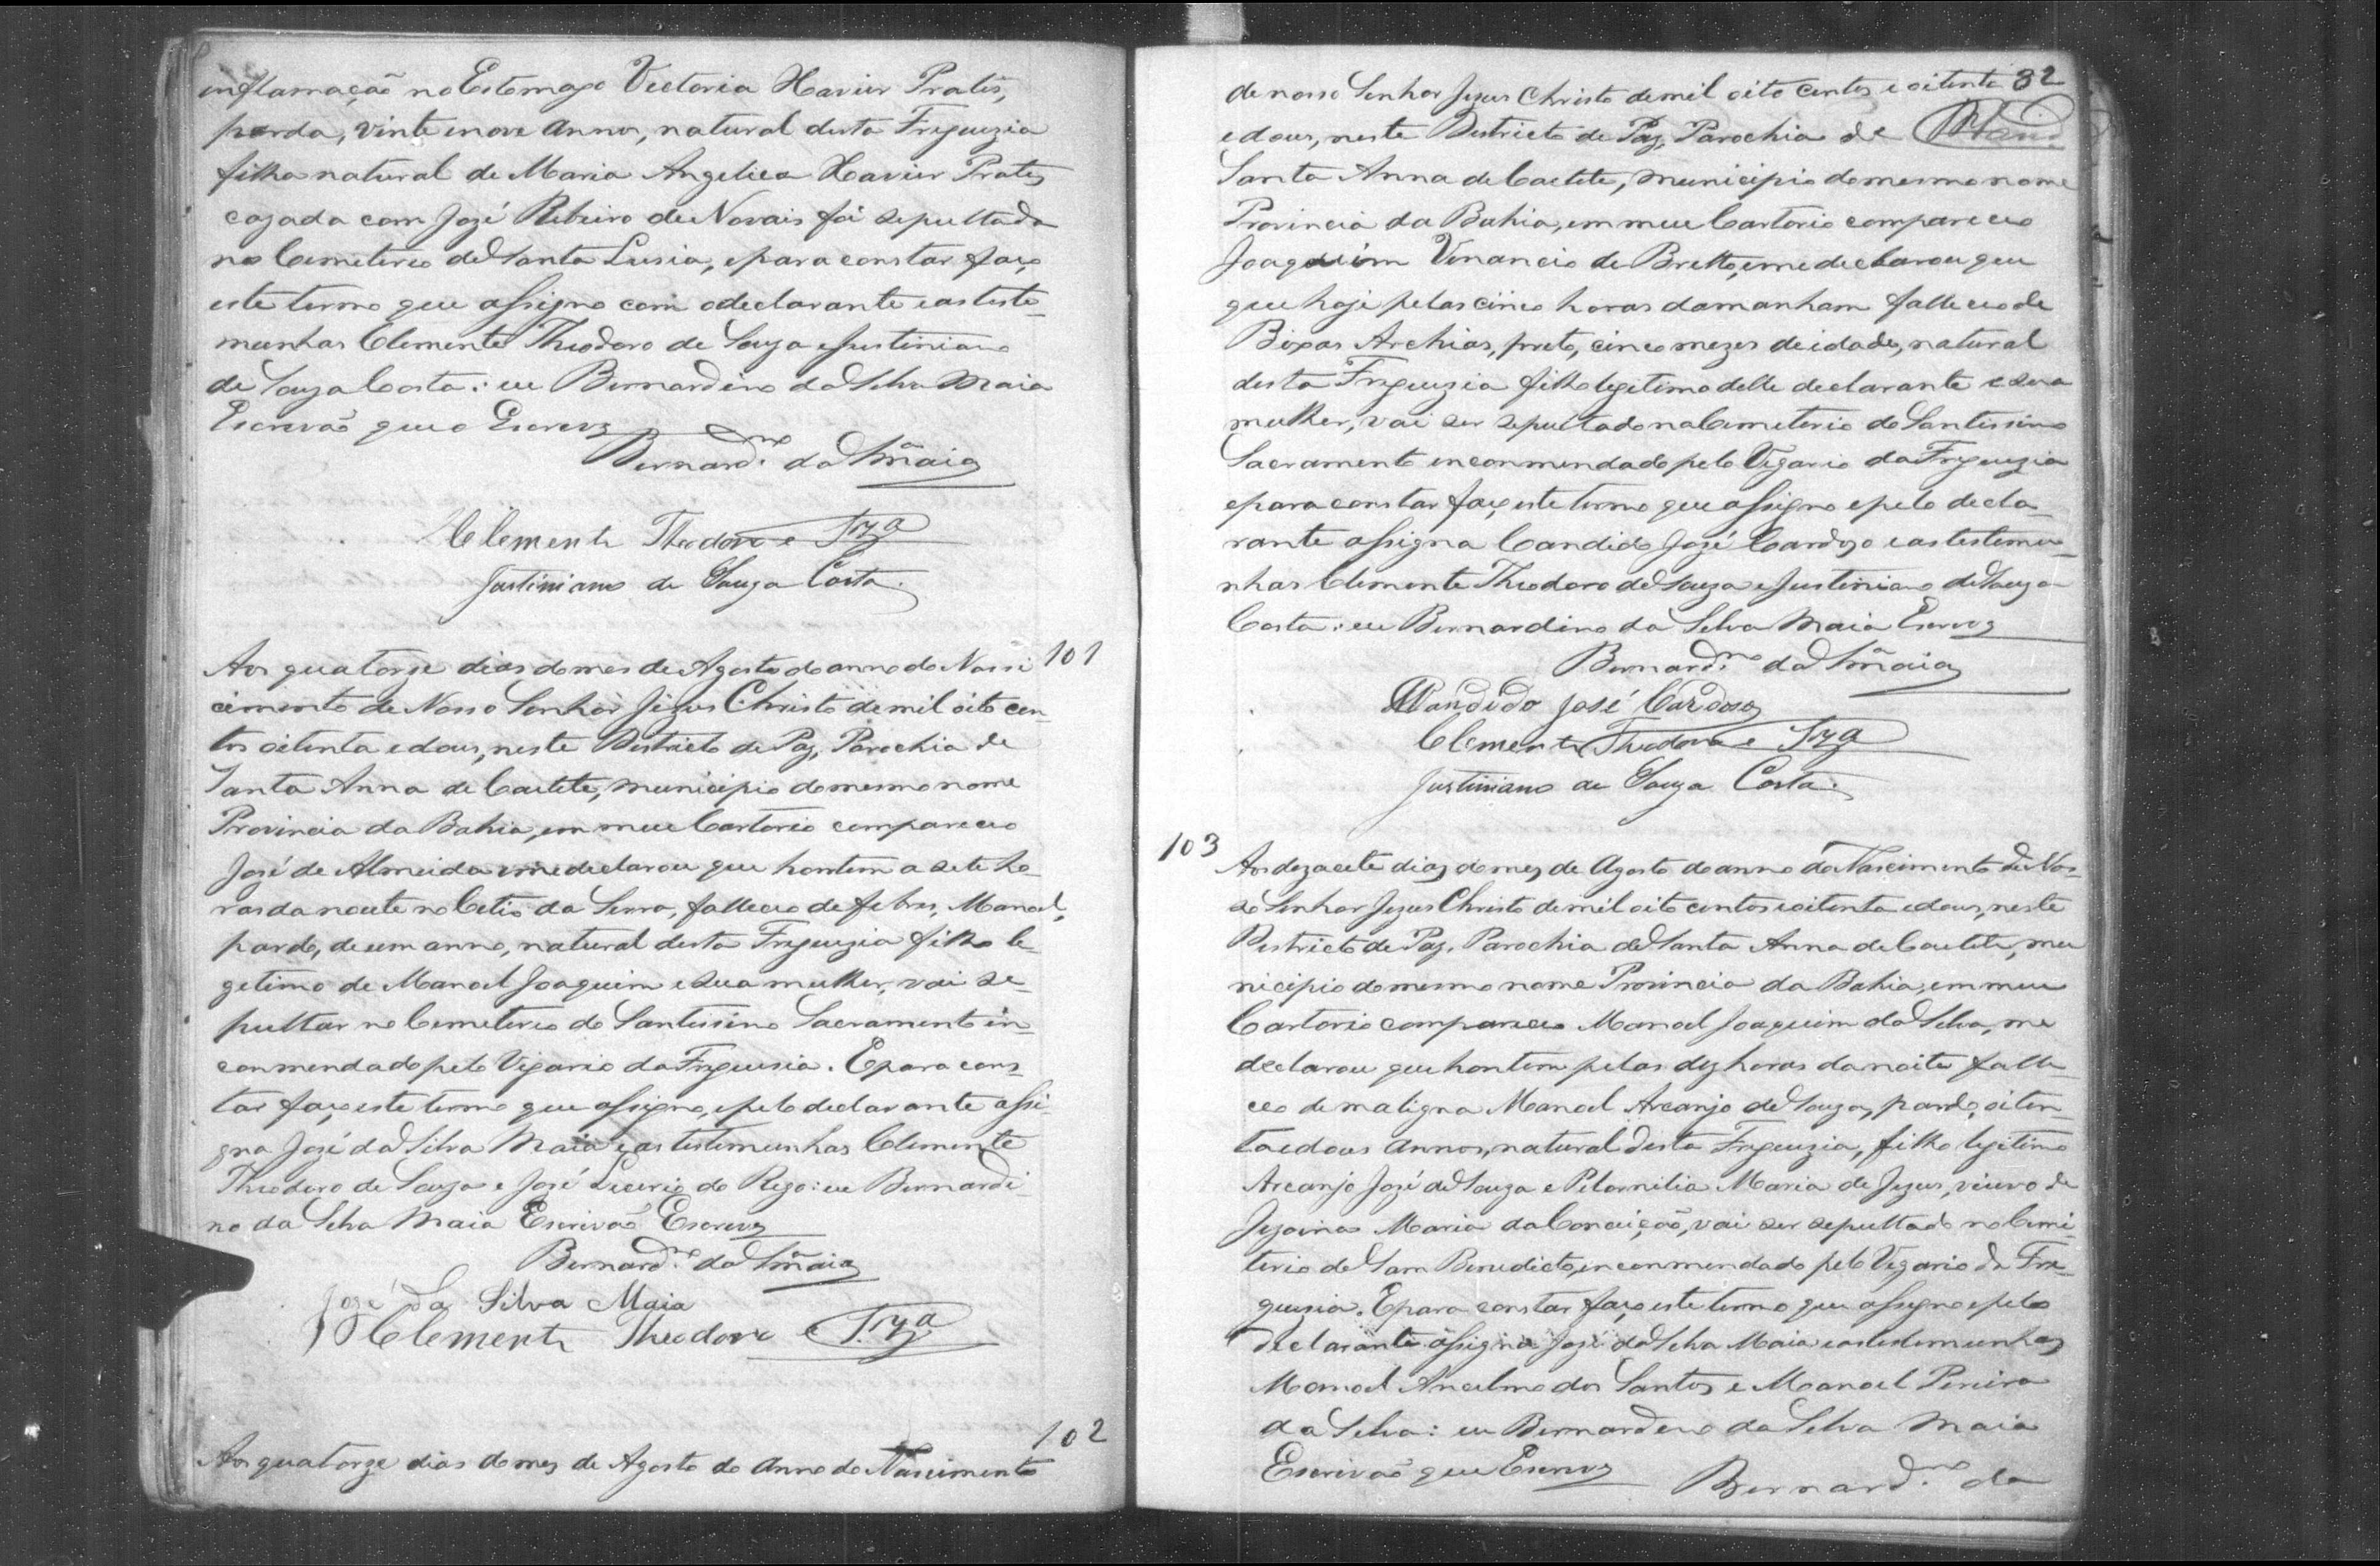 inflamação no Estomago Victoria Xavier Prates,
parda, vinte enove Annos, natural desta Freguezia
filha natural de Maria Angelica Xavier Prates
cazada com José Ribeiro de Novais foi sepultada
no Cemeterio de Santa Lusia, epara constar faço
este termo que assigno com odeclarante eas teste-
munhas Clemente Theodoro de Souza eJustiniano
de Souza Costa: eu Bernardino da Silva Maia
Escrevão que o Escrevy
Bernard.no da S Maia
Clemente Theodoro e Srza
Justiniano de Souza Costa.
101
Aos quatorze dias domes de Agosto do anno do Nassi
cimento de Nosso Senhor Jezus Christo de mil oito cen-
tos oitenta edous, neste Destricto de Paz, Parochia de
Santa Anna de Caetite, municipio domesmo nome
Provincia da Bahia, em meu Cartorio compareceo
José de Almeida eme declarou que hontem a sete ho-
ras da noute no Citio da Serra, falleceo de febres, Manoel,
pardo, de um anno, natural desta Freguezia filho le-
getimo de Manoel Joaquim esua mulher, vai se-
pultar no Cemeterio do Santissimo Sacramento in-
conmendado pelo Vigario da Freguesia. Epara cons-
tar faço este termo que assigno, epelo declarante assi-
gna José da Silva Maia eas testemunhas Clemente
Theodoro de Souza e José Licerio do Rego: eu Bernardi-
no da Silva Maia Escrivão Escrevy
Bernard.no da S Maia
José da Silva Maia
Clemente Theodoro e Srza
102
Aos quatorze dias do mez de Agosto do Anno do Nascimento
82
de nosso Senhor Jezus Christo demil oito centos e oitenta
edous, neste Destricto de Paz, Parochia de
Santa Anna de Caetite, municipio domesmo nome
Provincia da Bahia, em meu Cartorio compareceo
Joaquim Venancio de Bretto, eme declarou que
que hoje pelas cinco horas damanham falleceo de
Bixas Archias, preto, cinco mezes de idade, natural
desta Freguezia filho legitimo delle declarante e sua
mulher, vai ser sepultado no Cemeterio do Santissimo
Sacramento enconmendado pelo Vigario da Freguezia
epara constar faço este termo que assigno epelo decla-
rante assigna Candido José Cardozo eas testemu-
nhas Clemente Theodoro de Souza e Justiniano de Souza
Costa: eu Bernardino da Silva Maia Escrevy
Bernard.no da S Maia
Candido José Cardoso
Clemente Theodoro e Srza
Justiniano de Souza Costa.
103
Aos dezacete dias domez de Agosto do anno do Nascimento de Nos-
so Senhor Jezus Christo demil oito centos eoitenta edous, neste
Destricto de Paz, Parochia de Santa Anna de Caetite, mu
nicipio domesmo nome Provincia da Bahia, em meu
Cartorio compareceo Manoel Joaquim da Silva, me
declarou que hontem pelas dez horas da noite falle-
ceo de maligna Manoel Arcanjo de Souza, pardo, oiten-
ta edous annos, natural desta Freguezia, filho legitimo
Arcanjo José de Souza e Petornilia Maria de Jezus, viuvo de
Jezoina Maria da Conceição, vai ser sepultado no Cemi-
terio de Sam Benedicto, enconmendado pelo Vegario da Fre-
guesia. Epara constar faço este termo que assigno epelo
declarante assigna José da Silva Maia eas testemunhas
Manoel Ancelmo dos Santos e Manoel Pereira
da Silva: eu Bernardino da Silva Maia
Escrivão que Escrevy
Bernard.no da